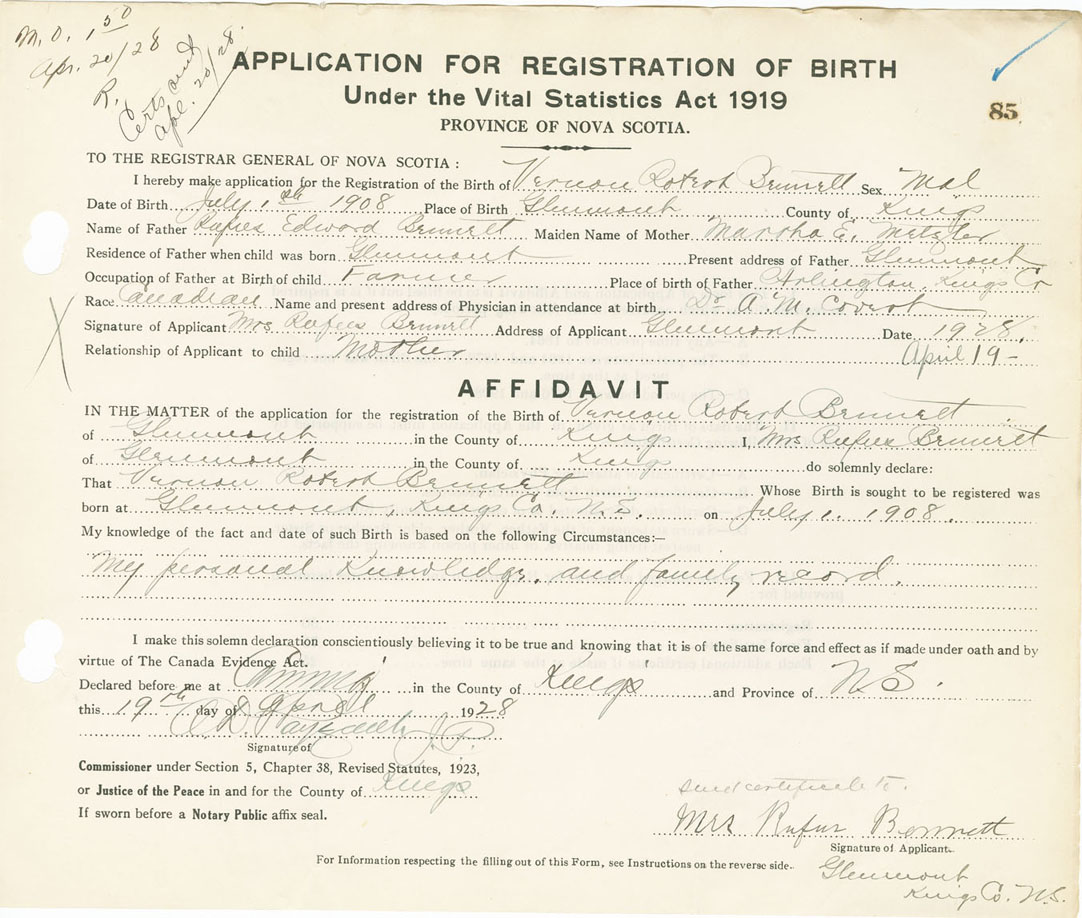 M.O. 1 50
Apr. 20/28
R.
Certs out
Apl. 20/28.
85
APPLICATION FOR REGISTRATION OF BIRTH
Under the Vital Statistics Act 1919
PROVINCE OF NOVA SCOTIA.
TO THE REGISTRAR GENERAL OF NOVA SCOTIA :
I hereby make application for the Registration of the Birth of Vernon Robert Bennett Sex Mal
Date of Birth July 1st 1908 Place of Birth Glenmont County of Kings
Name of Father Rufus Edward Bennett Maiden Name of Mother Martha E. Metzler
Residence of Father when child was born Glenmont Present address of Father Glenmont
Occupation of Father at Birth of child Farmer Place of birth of Father Arlington, Kings Co
Race Canadian Name and present address of Physician in attendance at birth Dr A. M. Covert
Signature of Applicant Mrs Rufus Bennett Address of Applicant Glenmont Date 1928.
Relationship of Applicant to child Mother April 19-
AFFIDAVIT
IN THE MATTER of the application for the registration of the Birth of Vernon Robert Bennett
of Glenmont in the County of Kings I, Mrs Rufus Bennett
of Glenmont in the County of Kings do solemnly declare:
That Vernon Robert Bennett Whose Birth is sought to be registered was
born at Glenmont, Kings Co. N.S. on July 1. 1908.
My knowledge of the fact and date of such Birth is based on the following Circumstances:—
My personal Knowledge, and family record.
I make this solemn declaration conscientiously believing it to be true and knowing that it is of the same force and effect as if made under oath and by
virtue of The Canada Evidence Act.
Declared before me at in the County of Kings and Province of N.S.
this 19th day of April 1928
J.P.
Signature of
Commissioner under Section 5, Chapter 38, Revised Statutes, 1923,
or Justice of the Peace in and for the County of Kings
If sworn before a Notary Public affix seal.
send certificate to.
Mrs Rufus Bennett
Signature of Applicant.
For Information respecting the filling out of this Form, see Instructions on the reverse side.
Glenmont
Kings Co. N.S.